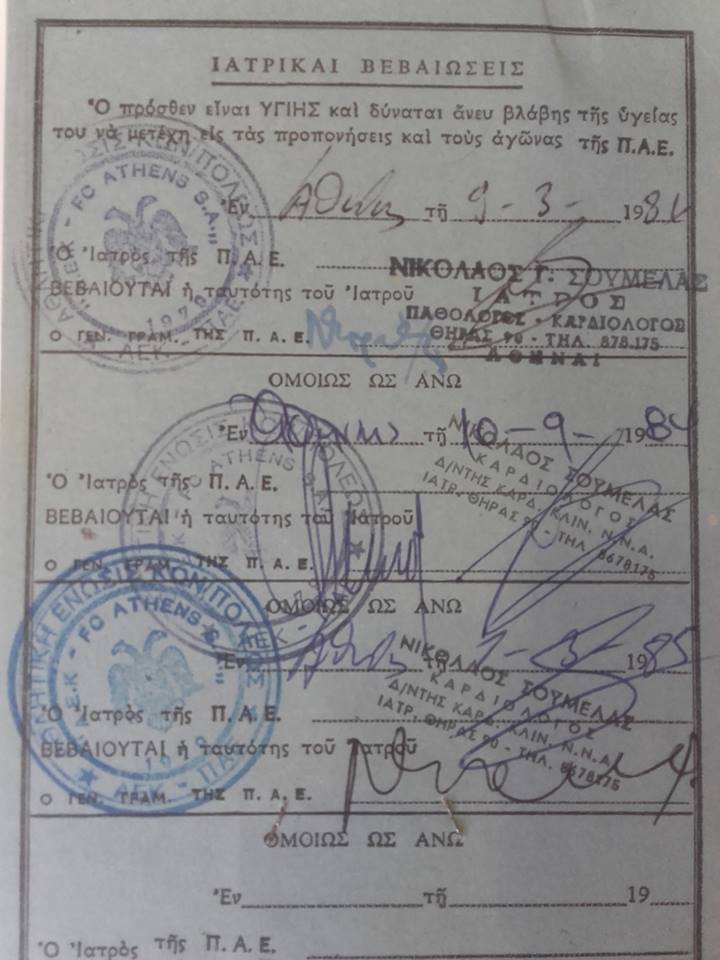 ΙΑΤΡΙΚΑΙ ΒΕΒΑΙΩΣΕΙΣ
Ὁ πρόσθεν εἶναι ΥΓΙΗΣ καὶ δύναται ἄνευ βλάβης τῆς ὑγείας
του νὰ μετέχῃ εἰς τὰς προπονήσεις καὶ τοὺς ἀγῶνας τῆς Π.Α.Ε.
"ΑΕΚ - FC ATHENS S.A."
1979
Ἐν Αθήνα τῇ 9-3-1984
Ὁ Ἰατρὸς τῆς Π.Α.Ε.
ΝΙΚΟΛΑΟΣ Γ. ΣΟΥΜΕΛΑΣ
ΙΑΤΡΟΣ
ΠΑΘΟΛΟΓΟΣ - ΚΑΡΔΙΟΛΟΓΟΣ
ΘΗΡΑΣ 90 - ΤΗΛ. 878.175
ΑΘΗΝΑΙ
ΒΕΒΑΙΟΥΤΑΙ ἡ ταυτότης τοῦ Ἰατροῦ
Ο ΓΕΝ. ΓΡΑΜ. ΤΗΣ Π.Α.Ε.
ΟΜΟΙΩΣ ΩΣ ΑΝΩ
Ἐν τῇ 10-9-1984
Ὁ Ἰατρὸς τῆς Π.Α.Ε.
ΝΙΚΟΛΑΟΣ ΣΟΥΜΕΛΑΣ
ΚΑΡΔΙΟΛΟΓΟΣ
Δ/ΝΤΗΣ ΚΑΡΔ. ΚΛΙΝ. Ν.Ν.Α.
ΙΑΤΡ. ΘΗΡΑΣ 90 - ΤΗΛ. 8678175
ΒΕΒΑΙΟΥΤΑΙ ἡ ταυτότης τοῦ Ἰατροῦ
Ο ΓΕΝ. ΓΡΑΜ. ΤΗΣ Π.Α.Ε.
ΟΜΟΙΩΣ ΩΣ ΑΝΩ
Ἐν τῇ 1985
Ὁ Ἰατρὸς τῆς Π.Α.Ε.
ΝΙΚΟΛΑΟΣ ΣΟΥΜΕΛΑΣ
ΚΑΡΔΙΟΛΟΓΟΣ
Δ/ΝΤΗΣ ΚΑΡΔ. ΚΛΙΝ. Ν.Ν.Α.
ΙΑΤΡ. ΘΗΡΑΣ 90 - ΤΗΛ. 8678175
ΒΕΒΑΙΟΥΤΑΙ ἡ ταυτότης τοῦ Ἰατροῦ
Ο ΓΕΝ. ΓΡΑΜ. ΤΗΣ Π.Α.Ε.
ΟΜΟΙΩΣ ΩΣ ΑΝΩ
Ἐν τῇ 19
Ὁ Ἰατρὸς τῆς Π.Α.Ε.